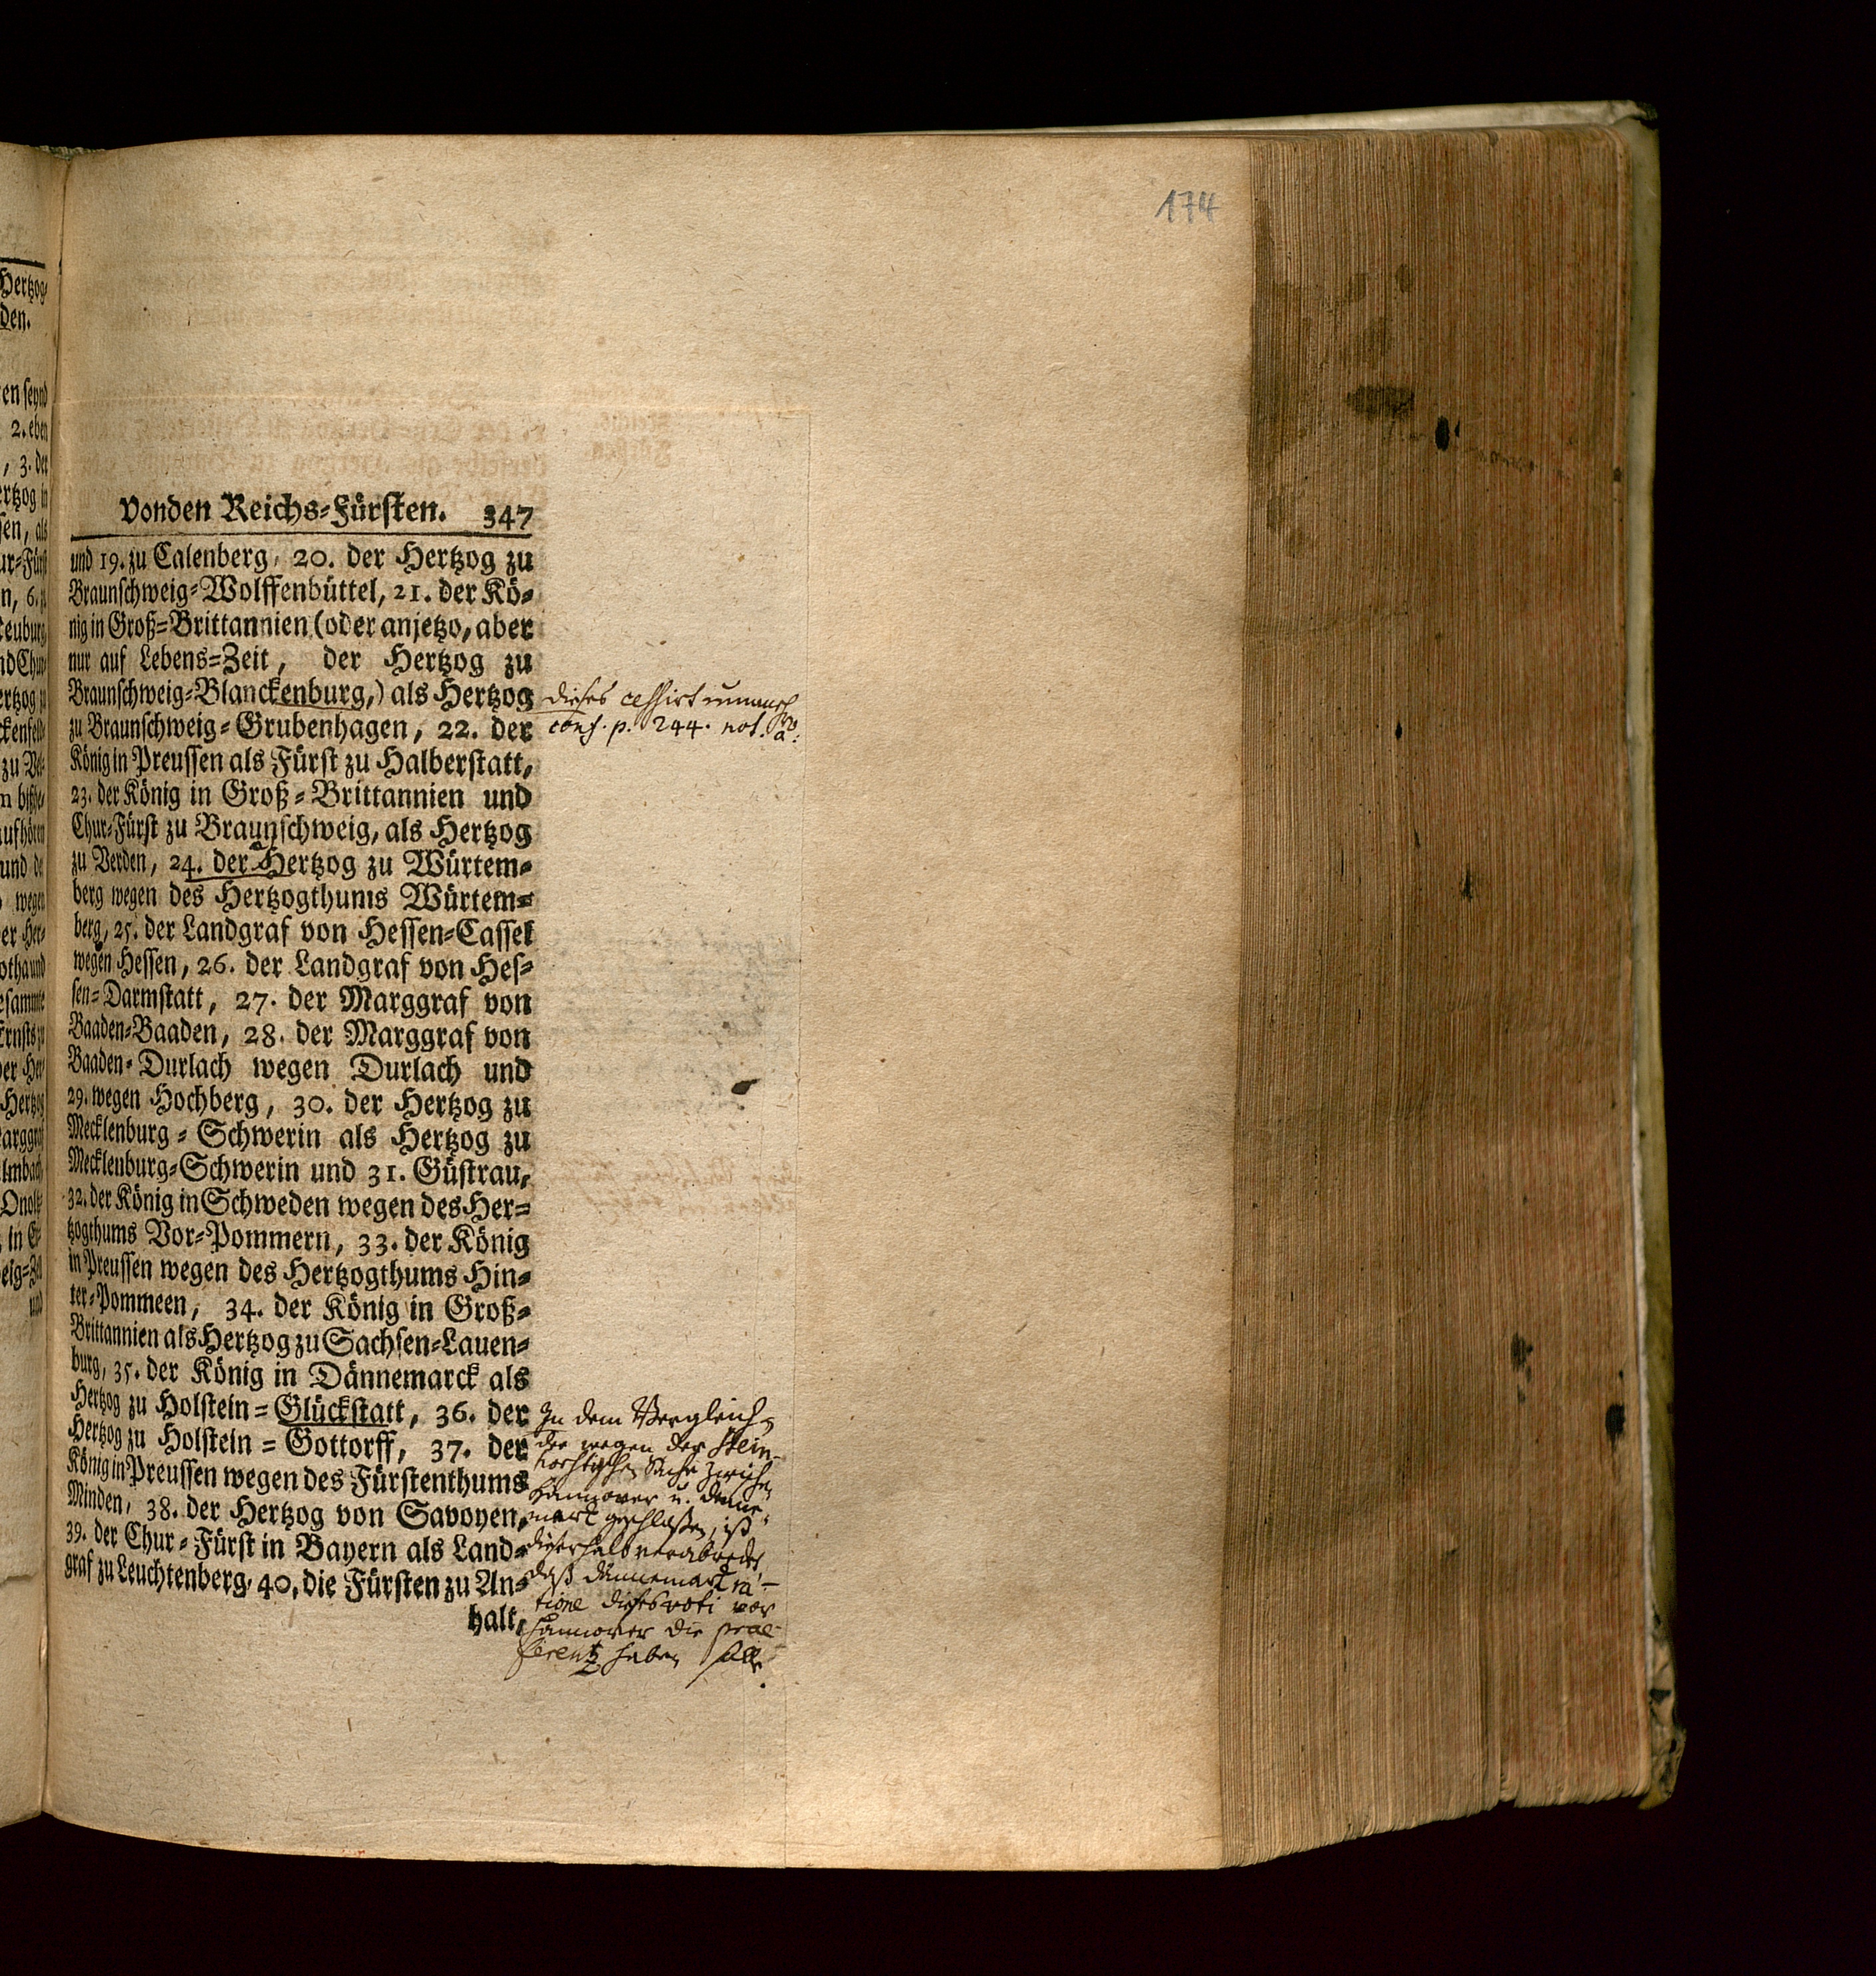 174
Vonden Reichs=Fürsten. 347
und 19. zu Calenberg, 20. der Hertzog zu
Braunschweig=Wolffenbüttel, 21. der Kö=
nig in Groß=Brittannien (oder anjetzo, aber
nur auf Lebens=Zeit, der Hertzog zu
Braunschweig=Blanckenburg,) als Hertzog
zu Braunschweig=Grubenhagen, 22. der
König in Preussen als Fürst zu Halberstatt,
23. der König in Groß=Brittannien und
Chur=Fürst zu Braunschweig, als Hertzog
zu Verden, 24. der Hertzog zu Würtem=
berg wegen des Hertzogthums Würtem=
berg, 25. der Landgraf von Hessen=Cassel
wegen Hessen, 26. der Landgraf von Hes=
sen=Darmstatt, 27. der Marggraf von
Baaden=Baaden, 28. der Marggraf von
Baaden=Durlach wegen Durlach und
29. wegen Hochberg, 30. der Hertzog zu
Mecklenburg=Schwerin als Hertzog zu
Mecklenburg=Schwerin und 31. Güstrau,
32. der König in Schweden wegen des Her=
tzogthums Vor=Pommern, 33. der König
in Preussen wegen des Hertzogthums Hin=
ter=Pommeen, 34. der König in Groß=
Brittannien als Hertzog zu Sachsen=Lauen=
burg, 35. der König in Dännemarck als
Hertzog zu Holstein=Glückstatt, 36. der
Hertzog zu Holstein=Gottorff, 37. der
König in Preussen wegen des Fürstenthums
Minden, 38. der Hertzog von Savoyen,
39. der Chur=Fürst in Bayern als Land=
graf zu Leuchtenberg, 40. die Fürsten zu An=
halt,
dieses cessirt nunmeh
conf. p. 244. not.
In dem Vergleich,
der wegen der Stein-
horstischen Sache zwischen
Hannover u. Denne-
mark geschlossen, ist
dieserhalb verabredet,
daß Dännemark ra-
tione dieses voti vor
Hannover die prae-
ferentz haben solle.